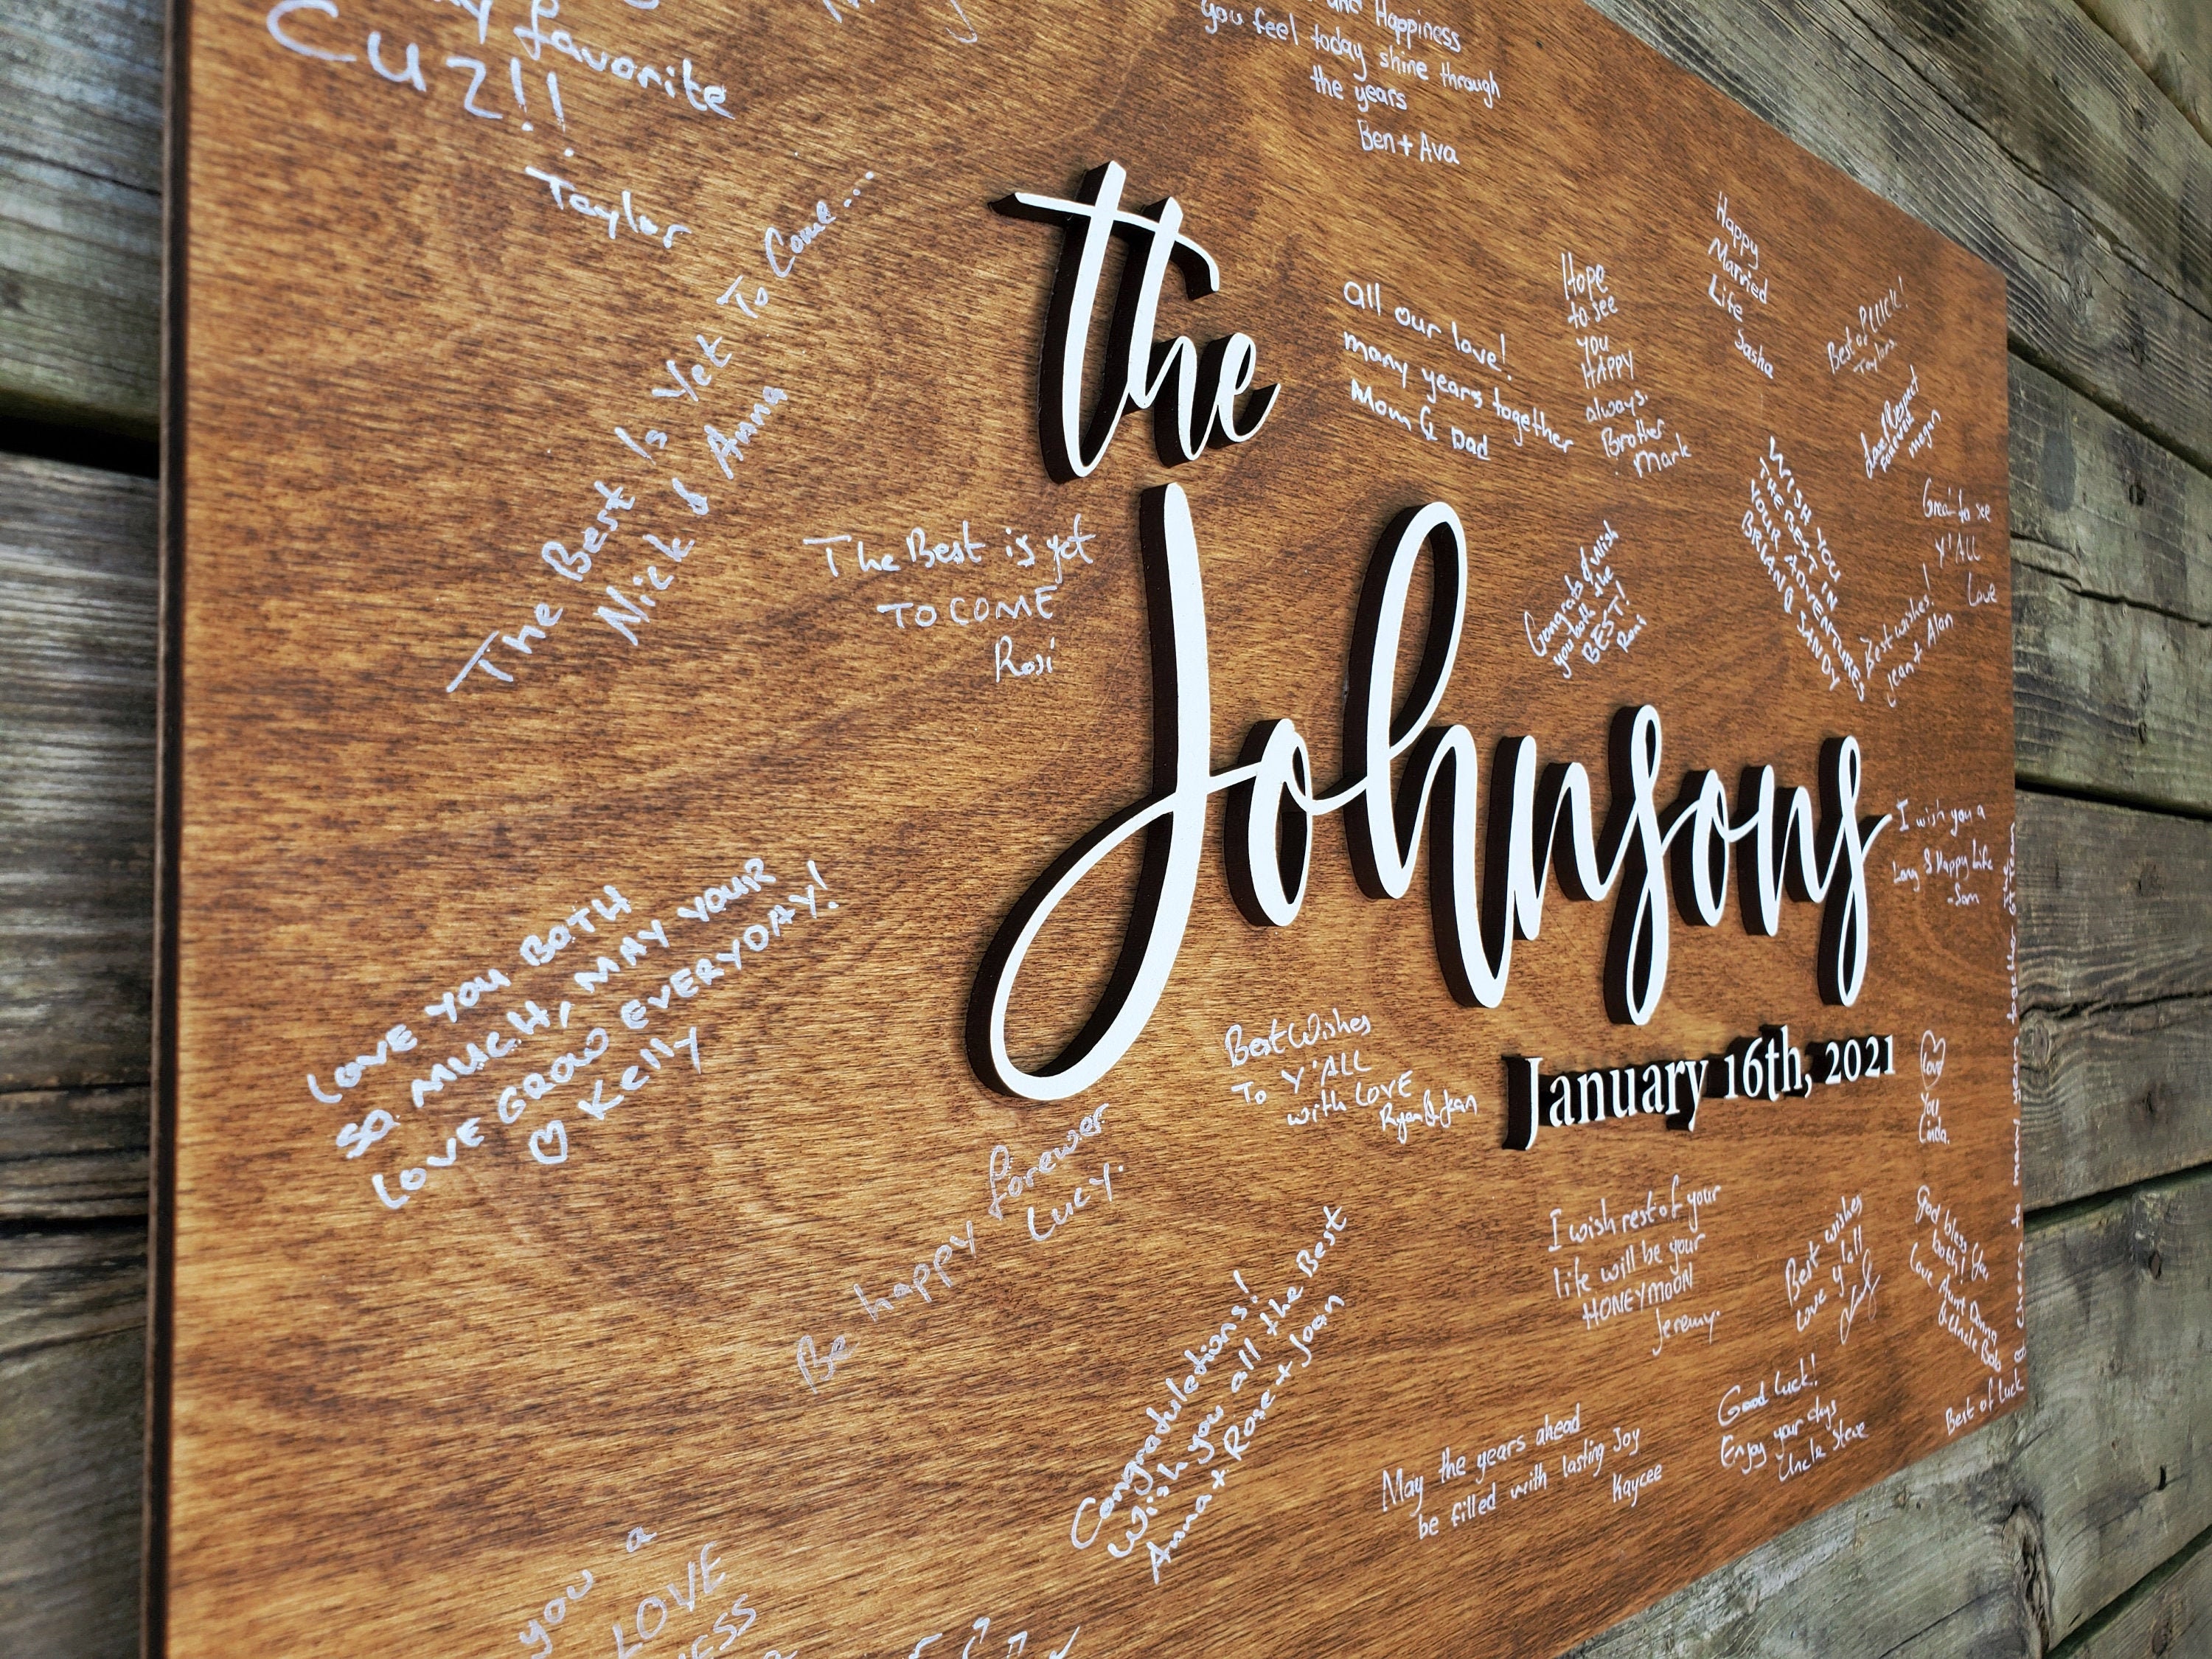 my favorite
Cuz!!
Taylor
and Happiness
you feel today shine through
the years
Ben + Ava
The Best Is Yet To Come...
Nick & Anna
the
Johnsons
January 16th, 2021
all our love!
many years together
Mom & Dad
Hope
to see
you
HAPPY
always.
Brother
Mark
Happy
Married
Life
Sasha
Best of
Love & Respect
FOREVER
megan
WISH YOU
THE BEST IN
YOUR ADVENTURES
BRIAN & SANDY
Great to see
Y'ALL
Love
Best wishes!
Jean + Alan
Congrats & wish
you both the
BEST!
Roni
The Best is yet
TO COME
Rosi
I wish you a
Long & Happy Life
-Sam
LOVE YOU BOTH
SO MUCH, MAY YOUR
LOVE GROW EVERYDAY!
♡ Kelly
Best Wishes
To Y'ALL
with LOVE
Ryan & Jean
Love
You
Linda.
Be happy forewer
Lucy.
I wish rest of your
life will be your
HONEYMOON
Jeremy.
Best wishes
Love y'all
God bless you
both!
Love Aunt Donna
& Uncle Bob
Best of Luck & Cheers to many years together
Congraduletions!
Wish you all the Best
Anna + Rose + Joan
May the years ahead
be filled with lasting Joy
Kaycee
Good Luck!
Enjoy your days
Uncle Steve
you a
LOVE